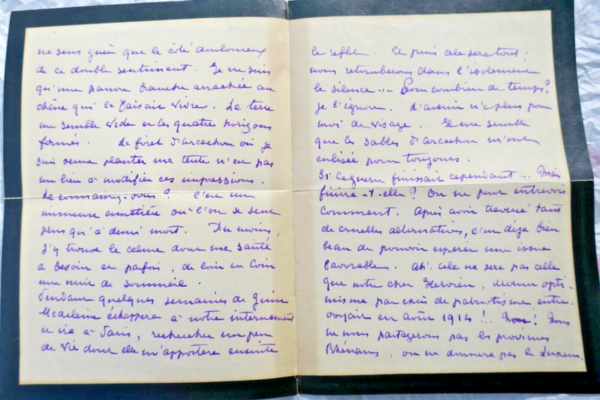 ne sens guère que le côté douloureux
de ce double sentiment. Je ne suis
qu'une pauvre branche arrachée au
chêne qui la faisait vivre. La terre
me semble vide et les quatre horizons
fermés. La forêt d'Arcachon où je
suis venue planter ma tente n'en pas
au lieu à modifier ces impressions.
La connaissez-vous ? C'est un
immense cimetière où l'on se sent
plus qu'à demi mort. Du moins,
j'y trouve le calme dont ma santé
a besoin et parfois, de loin en loin
une nuit de sommeil.
Pendant quelques semaines de juin
Madeleine échappera à notre internement
et ira à Paris, rechercher un peu
de vie dont elle m'apportera ensuite
le reflet. Et puis cela sera tout ;
nous retomberons dans l'isolement
le silence... Pour combien de temps ?
Je l'ignore. L'avenir n'a plus pour
moi de visage. Il me semble
que les sables d'Arcachon m'ont
enlisée pour toujours.
Si la guerre finissait cependant... Mais
finira-t-elle ? On ne peut entrevoir
comment. Après avoir traversé tant
de cruelles alternatives, c'est déjà bien
beau de pouvoir espérer une issue
favorable. Ah ! cela ne sera pas celle
que notre cher devenu opti-
miste par excès de patriotisme entre-
voyait en août 1914 !.. Non ! Nous
ne nous partagerons pas les provinces
Rhénanes, on ne donnera pas le Luxem-